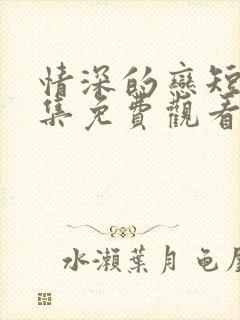 情深的戀短
集免費觀看
水瀨葉月龟